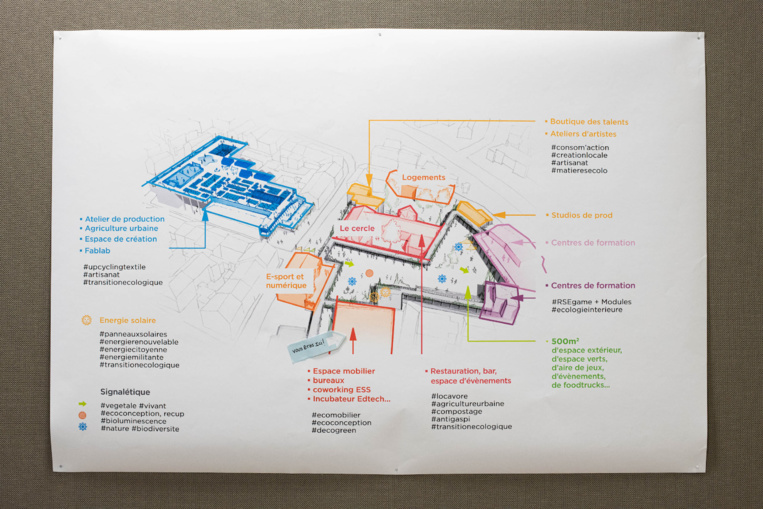 • Boutique des talents
• Ateliers d'artistes
#consom'action
#creationlocale
#artisanat
#matieresecolo
Logements
• Studios de prod
Le cercle
• Centres de formation
• Atelier de production
• Agriculture urbaine
• Espace de création
• Fablab
#upcyclingtextile
#artisanat
#transitionecologique
E-sport et
numérique
• Centres de formation
#RSEgame + Modules
#ecologieinterieure
Energie solaire
#panneauxsolaires
#energierenouvelable
#energiecitoyenne
#energiemilitante
#transitionecologique
vous êtes ici!
500m²
d'espace extérieur,
d'espace verts,
d'aire de jeux,
d'évènements,
de foodtrucks...
• Espace mobilier
• bureaux
• coworking ESS
• Incubateur Edtech...
#ecomobilier
#ecoconception
#decogreen
• Restauration, bar,
espace d'évènements
#locavore
#agricultureurbaine
#compostage
#antigaspi
#transitionecologique
Signalétique
#vegetale #vivant
#ecoconception, recup
#bioluminescence
#nature #biodiversite